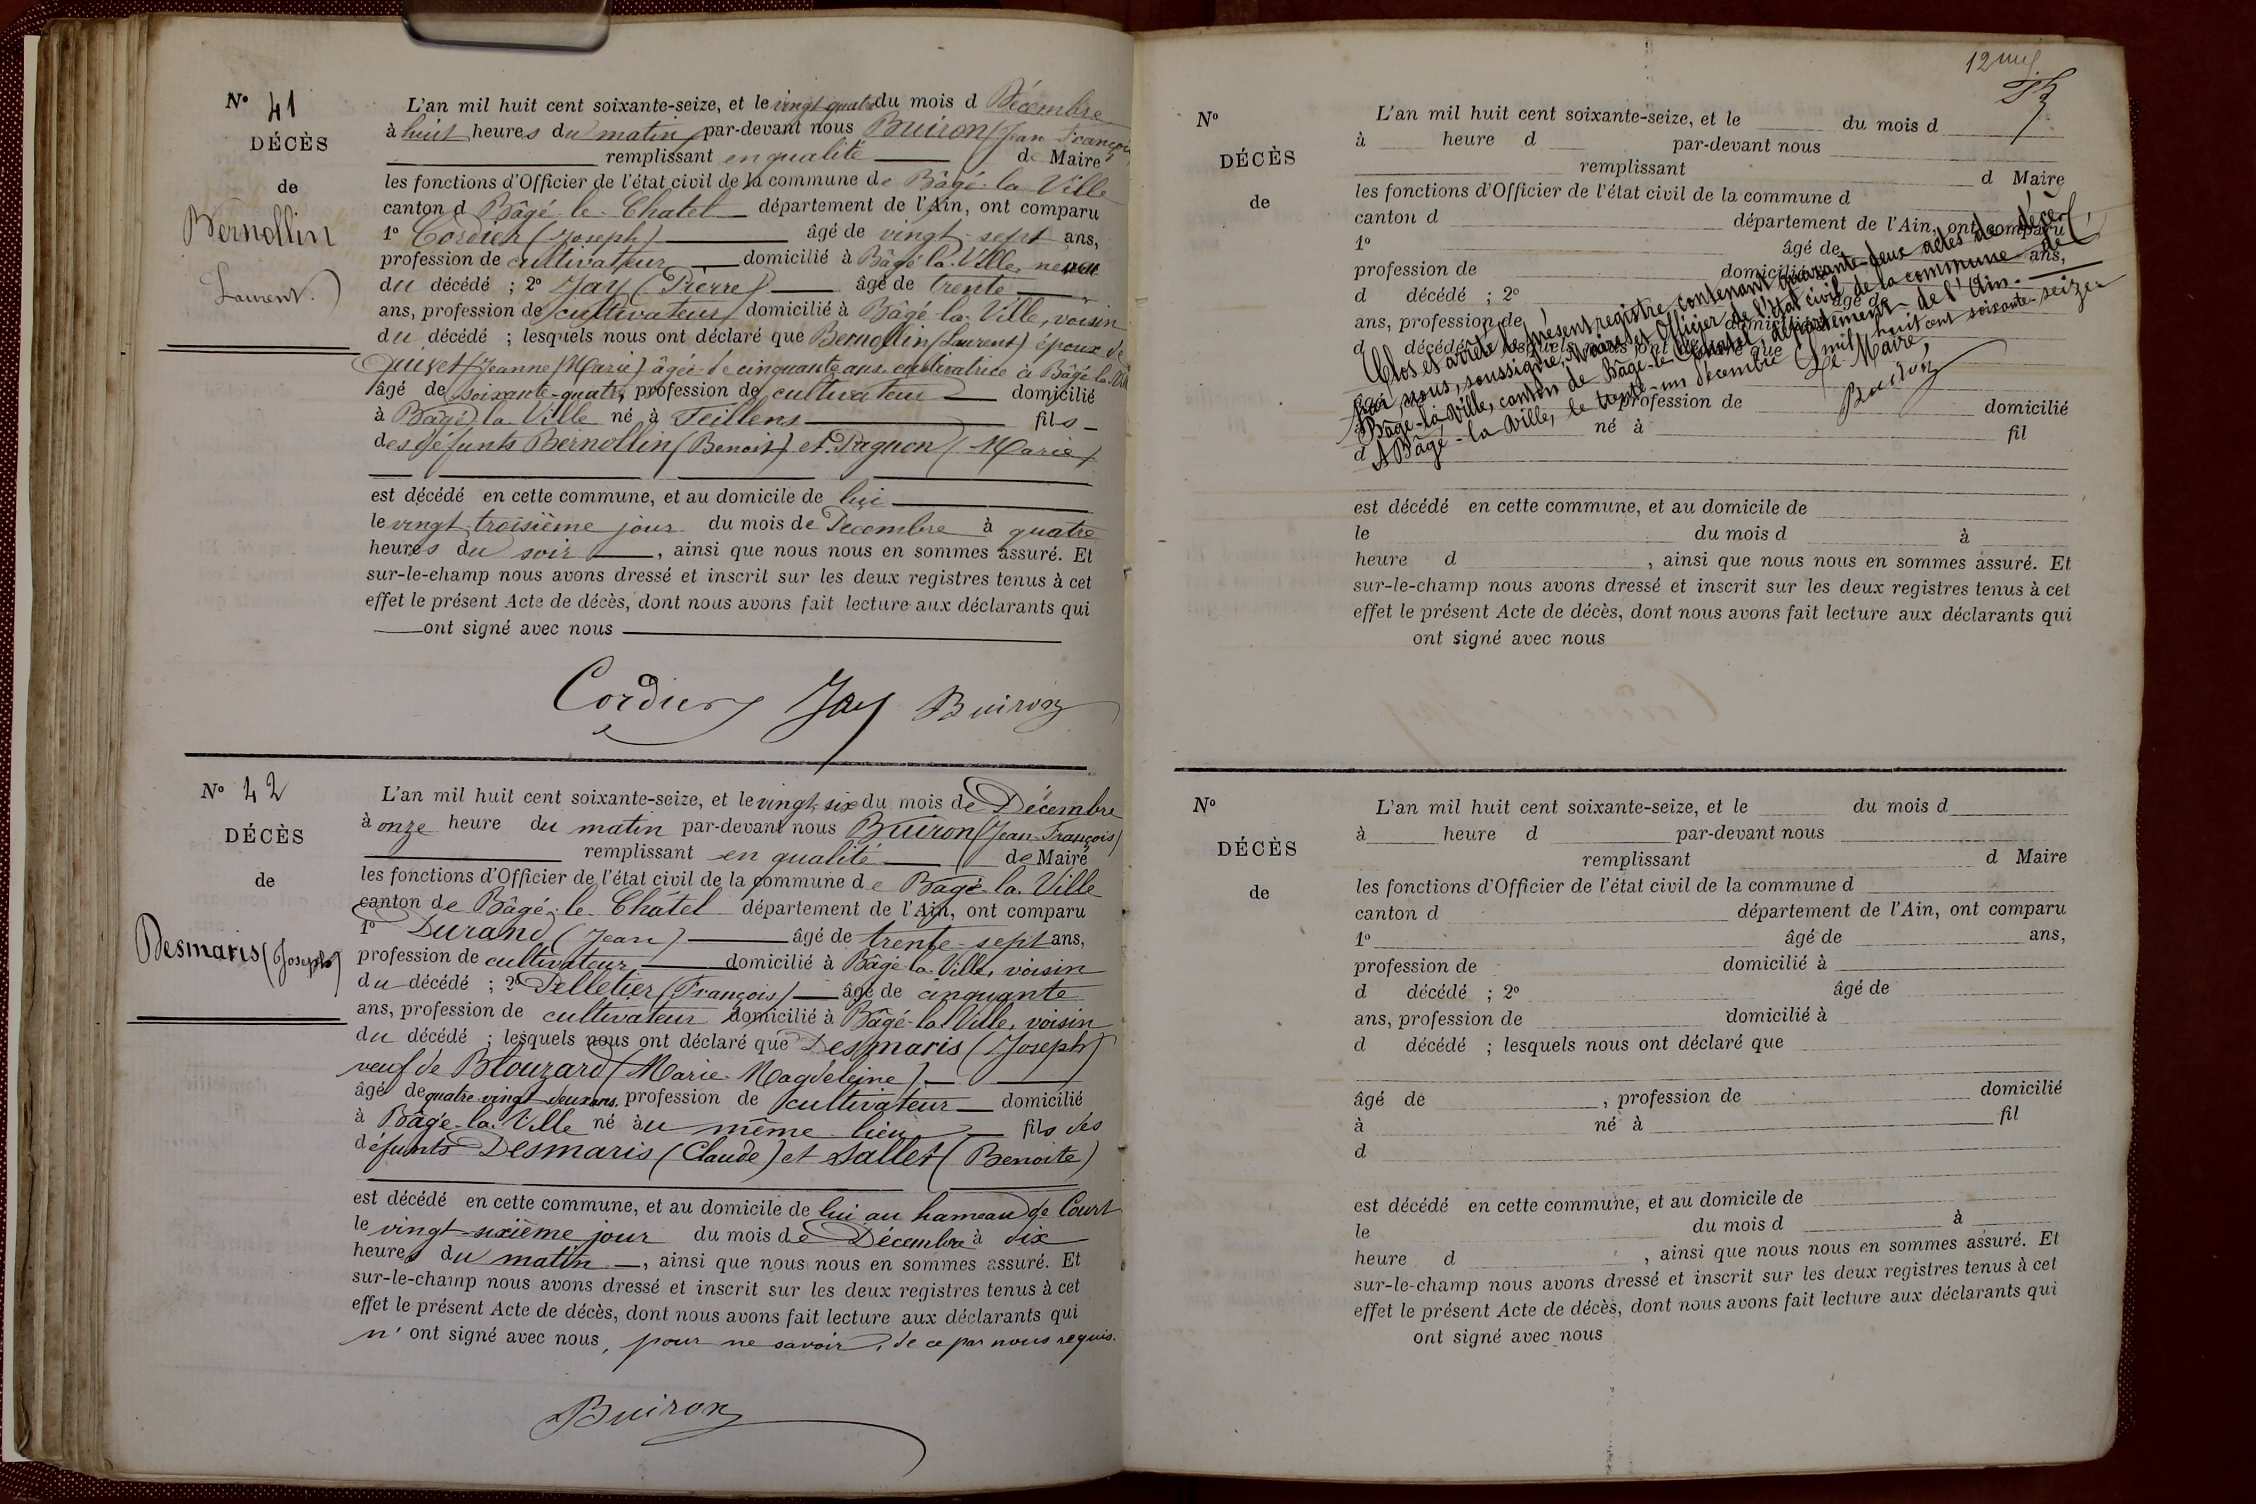 Nº 41
DÉCÈS
de
Bernollin
Laurent.
L'an mil huit cent soixante-seize, et le vingt quatre du mois d Décembre
à huit heures du matin par-devant nous Buiron (Jean François)
remplissant en qualité de Maire
les fonctions d'Officier de l'état civil de la commune de Bâgé-la-Ville
canton d Bâgé-le-Chatel département de l'Ain, ont comparu
1º Cordier (Joseph) âgé de vingt-sept ans,
profession de cultivateur domicilié à Bâgé-la-Ville, neveu
du décédé ; 2º Jay (Pierre) âgé de trente
ans, profession de cultivateur domicilié à Bâgé-la-Ville, voisin
du décédé ; lesquels nous ont déclaré que Bernollin (Laurent) époux de
(Jeanne Marie) âgée de cinquante ans cultivatrice à Bâgé-la-Ville
âgé de soixante-quatre, profession de cultivateur domicilié
à Bâgé-la-Ville né à Feillens fils
des défunts Bernollin (Benoit) et Pagnon (Marie)
est décédé en cette commune, et au domicile de lui
le vingt-troisième jour du mois de Décembre à quatre
heures du soir, ainsi que nous nous en sommes assuré. Et
sur-le-champ nous avons dressé et inscrit sur les deux registres tenus à cet
effet le présent Acte de décès, dont nous avons fait lecture aux déclarants qui
ont signé avec nous
Cordier Jay Buiron
Nº 42
DÉCÈS
de
Desmaris (Joseph)
L'an mil huit cent soixante-seize, et le vingt-six du mois de Décembre
à onze heure du matin par-devant nous Buiron (Jean-François)
remplissant en qualité de Maire
les fonctions d'Officier de l'état civil de la commune de Bâgé-la-Ville
canton de Bâgé-le-Châtel département de l'Ain, ont comparu
1º Durand (Jean) âgé de trente-sept ans,
profession de cultivateur domicilié à Bâgé-la-Ville, voisin
du décédé ; 2º Pelletier (François) âgé de cinquante
ans, profession de cultivateur domicilié à Bâgé-la-Ville, voisin
du décédé ; lesquels nous ont déclaré que Desmaris (Joseph)
veuf de Blouzard (Marie-Magdeleine)
âgé de quatre-vingt deux ans, profession de cultivateur domicilié
à Bâgé-la-Ville né àu même lieu fils des
défunts Desmaris (Claude) et Sallet (Benoite)
est décédé en cette commune, et au domicile de lui au hameau de Court
le vingt-sixième jour du mois de Décembre à dix
heures du matin, ainsi que nous nous en sommes assuré. Et
sur-le-champ nous avons dressé et inscrit sur les deux registres tenus à cet
effet le présent Acte de décès, dont nous avons fait lecture aux déclarants qui
n'ont signé avec nous, pour ne savoir, de ce par nous requis.
Buiron
Nº
DÉCÈS
de
L'an mil huit cent soixante-seize, et le du mois d
à heure d par-devant nous
remplissant d Maire
les fonctions d'Officier de l'état civil de la commune d
canton d département de l'Ain, ont comparu
1º âgé de ans,
profession de domicilié à
d décédé ; 2º âgé de
ans, profession de domicilié à
d décédé ; lesquels nous ont déclaré que
Clos et arrêté le présent registre, contenant quarante-deux actes de décès,
par nous, soussigné, Maire et Officier de l'état civil de la commune de
Bâgé-la-Ville, canton de Bâgé-le-Chatel, département de l'Ain.
A Bâgé-la-Ville, le trente-un décembre mil huit cent soixante-seize.
Le Maire,
Buiron
profession de domicilié
né à fil
d
est décédé en cette commune, et au domicile de
le du mois d à
heure d , ainsi que nous nous en sommes assuré. Et
sur-le-champ nous avons dressé et inscrit sur les deux registres tenus à cet
effet le présent Acte de décès, dont nous avons fait lecture aux déclarants qui
ont signé avec nous
Nº
DÉCÈS
de
L'an mil huit cent soixante-seize, et le du mois d
à heure d par-devant nous
remplissant d Maire
les fonctions d'Officier de l'état civil de la commune d
canton d département de l'Ain, ont comparu
1º âgé de ans,
profession de domicilié à
d décédé ; 2º âgé de
ans, profession de domicilié à
d décédé ; lesquels nous ont déclaré que
âgé de , profession de domicilié
à né à fil
d
est décédé en cette commune, et au domicile de
le du mois d à
heure d , ainsi que nous nous en sommes assuré. Et
sur-le-champ nous avons dressé et inscrit sur les deux registres tenus à cet
effet le présent Acte de décès, dont nous avons fait lecture aux déclarants qui
ont signé avec nous